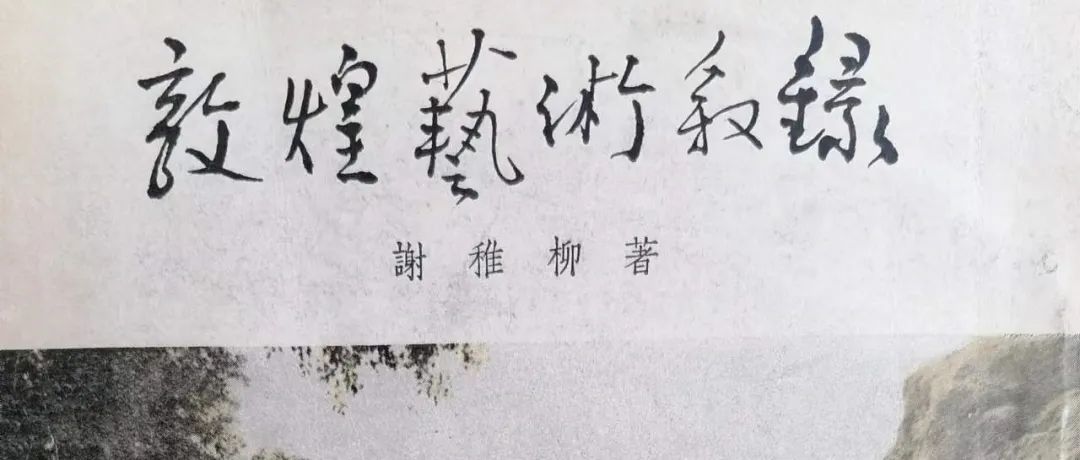 敦煌藝術叙錄
謝稚柳著